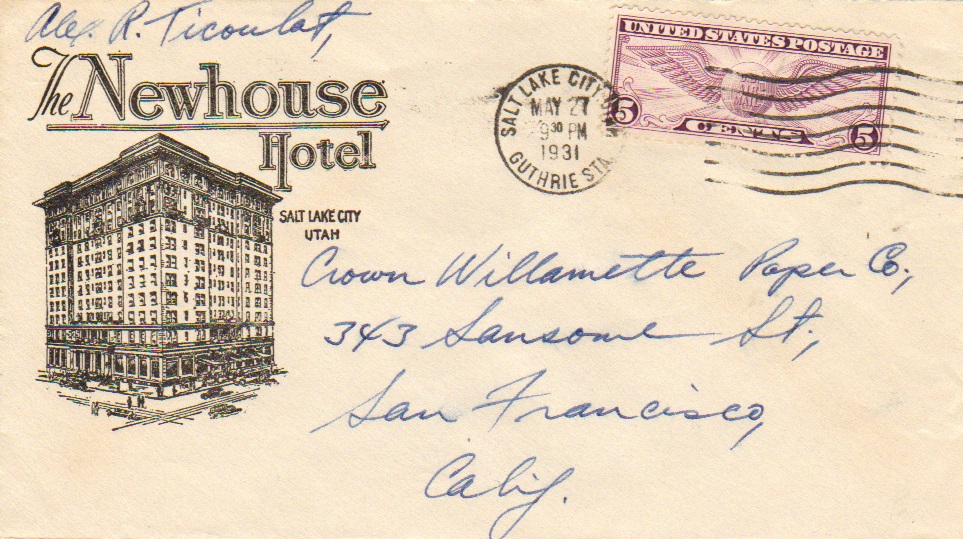 Alex. R. Ticoulat,
The Newhouse
Hotel
SALT LAKE CITY
UTAH
UNITED STATES POSTAGE
5 CENTS 5
SALT LAKE CITY
MAY 27
9 30 PM
1931
GUTHRIE STA.
Crown Willamette Paper Co.,
343 Sansome St.,
San Francisco,
Calif.